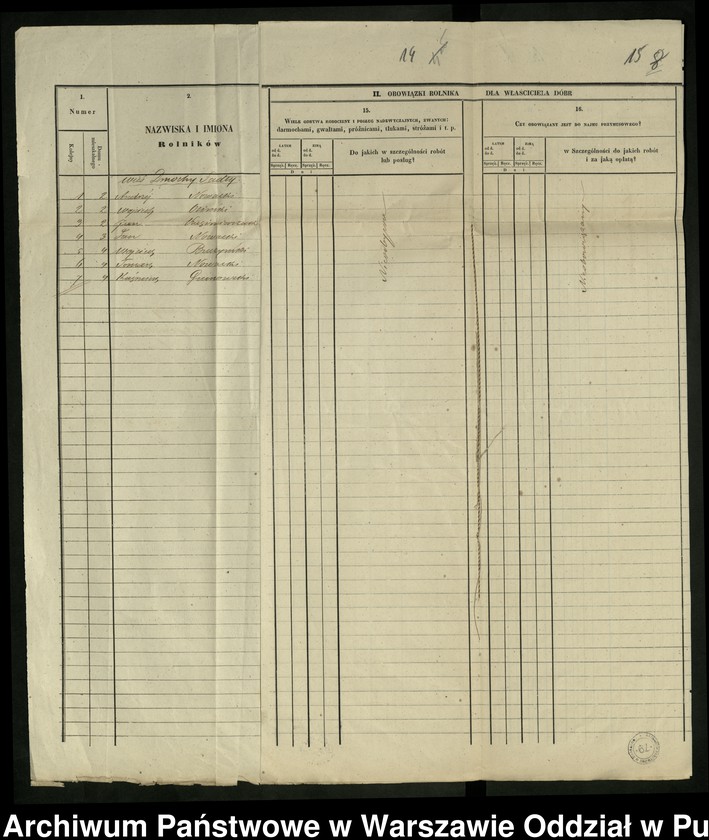 14
15
8
1.
Numer
Kolejny
Domu
2.
NAZWISKA I IMIONA
Rolników
II. OBOWIĄZKI ROLNIKA DLA WŁAŚCICIELA DÓBR
15.
WIELE ODBYWA ROBOCIZNY I POSŁUG NADZWYCZAJNYCH, ZWANYCH:
darmochami, gwałtami, próżnicami, tłokami, stróżami i t. p.
LATEM
od d.
do d.
ZIMĄ
od d.
do d.
Sprzęż. Ręcz. Sprzęż. Ręcz.
Dni
Do jakich w szczególności robót
lub posług?
16.
CZY OBOWIĄZANY JEST DO NAJMU PRZYMUSOWEGO?
LATEM
od d.
do d.
ZIMĄ
od d.
do d.
Sprzęż. Ręcz. Sprzęż. Ręcz.
Dni
w Szczególności do jakich robót
i za jaką opłatą?
wieś Dmochy
1 2 Andrzej Nowacki
2 2 Wojciech
3 2
4 3 Jan Nowacki
5 4 Wojciech
6 4 Tomasz Nowacki
7 4
79
Archiwum Państwowe w Warszawie Oddział w Pu